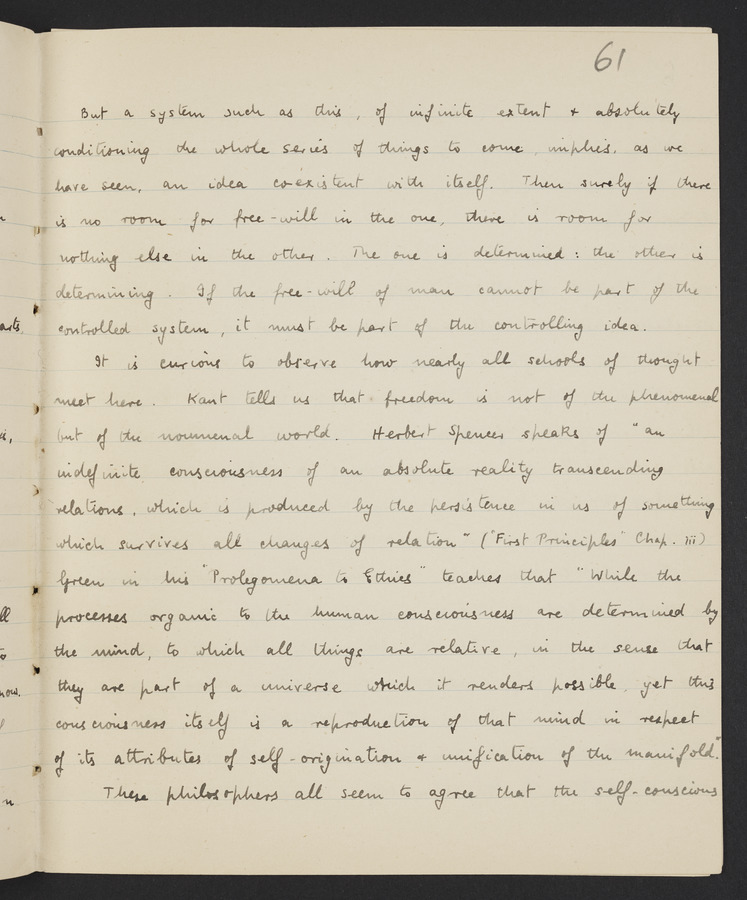 61
But a system such as this, of infinite extent + absolutely
conditioning the whole series of things to come, implies, as we
have seen, an idea co-existent with itself. Then surely if there
is no room for free-will in the one, there is room for
nothing else in the other. The one is determined: the other is
determining. If the free-will of man cannot be part of the
controlled system, it must be part of the controlling idea.
It is curious to observe how nearly all schools of thought
meet here. Kant tells us that freedom is not of the phenomenal
but of the noumenal world. Herbert Spencer speaks of "an
indefinite consciousness of an absolute reality transcending
relations, which is produced by the persistence in us of something
which survives all changes of relation" ("First Principles" Chap. iii)
Green in his "Prolegomena to Ethics" teaches that "While the
processes organic to the human consciousness are determined by
the mind, to which all things are relative, in the sense that
they are part of a universe which it renders possible, yet this
consciousness itself is a reproduction of that mind in respect
of its attributes of self-origination + unification of the manifold."
These philosophers all seem to agree that the self-conscious